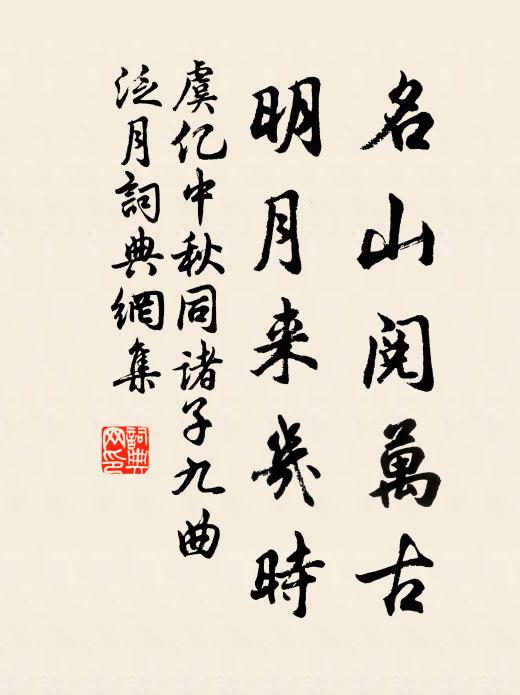 名山閱萬古
明月来幾時
虞仡中秋同诸子九曲
泛月詞典網集
詞典
网印